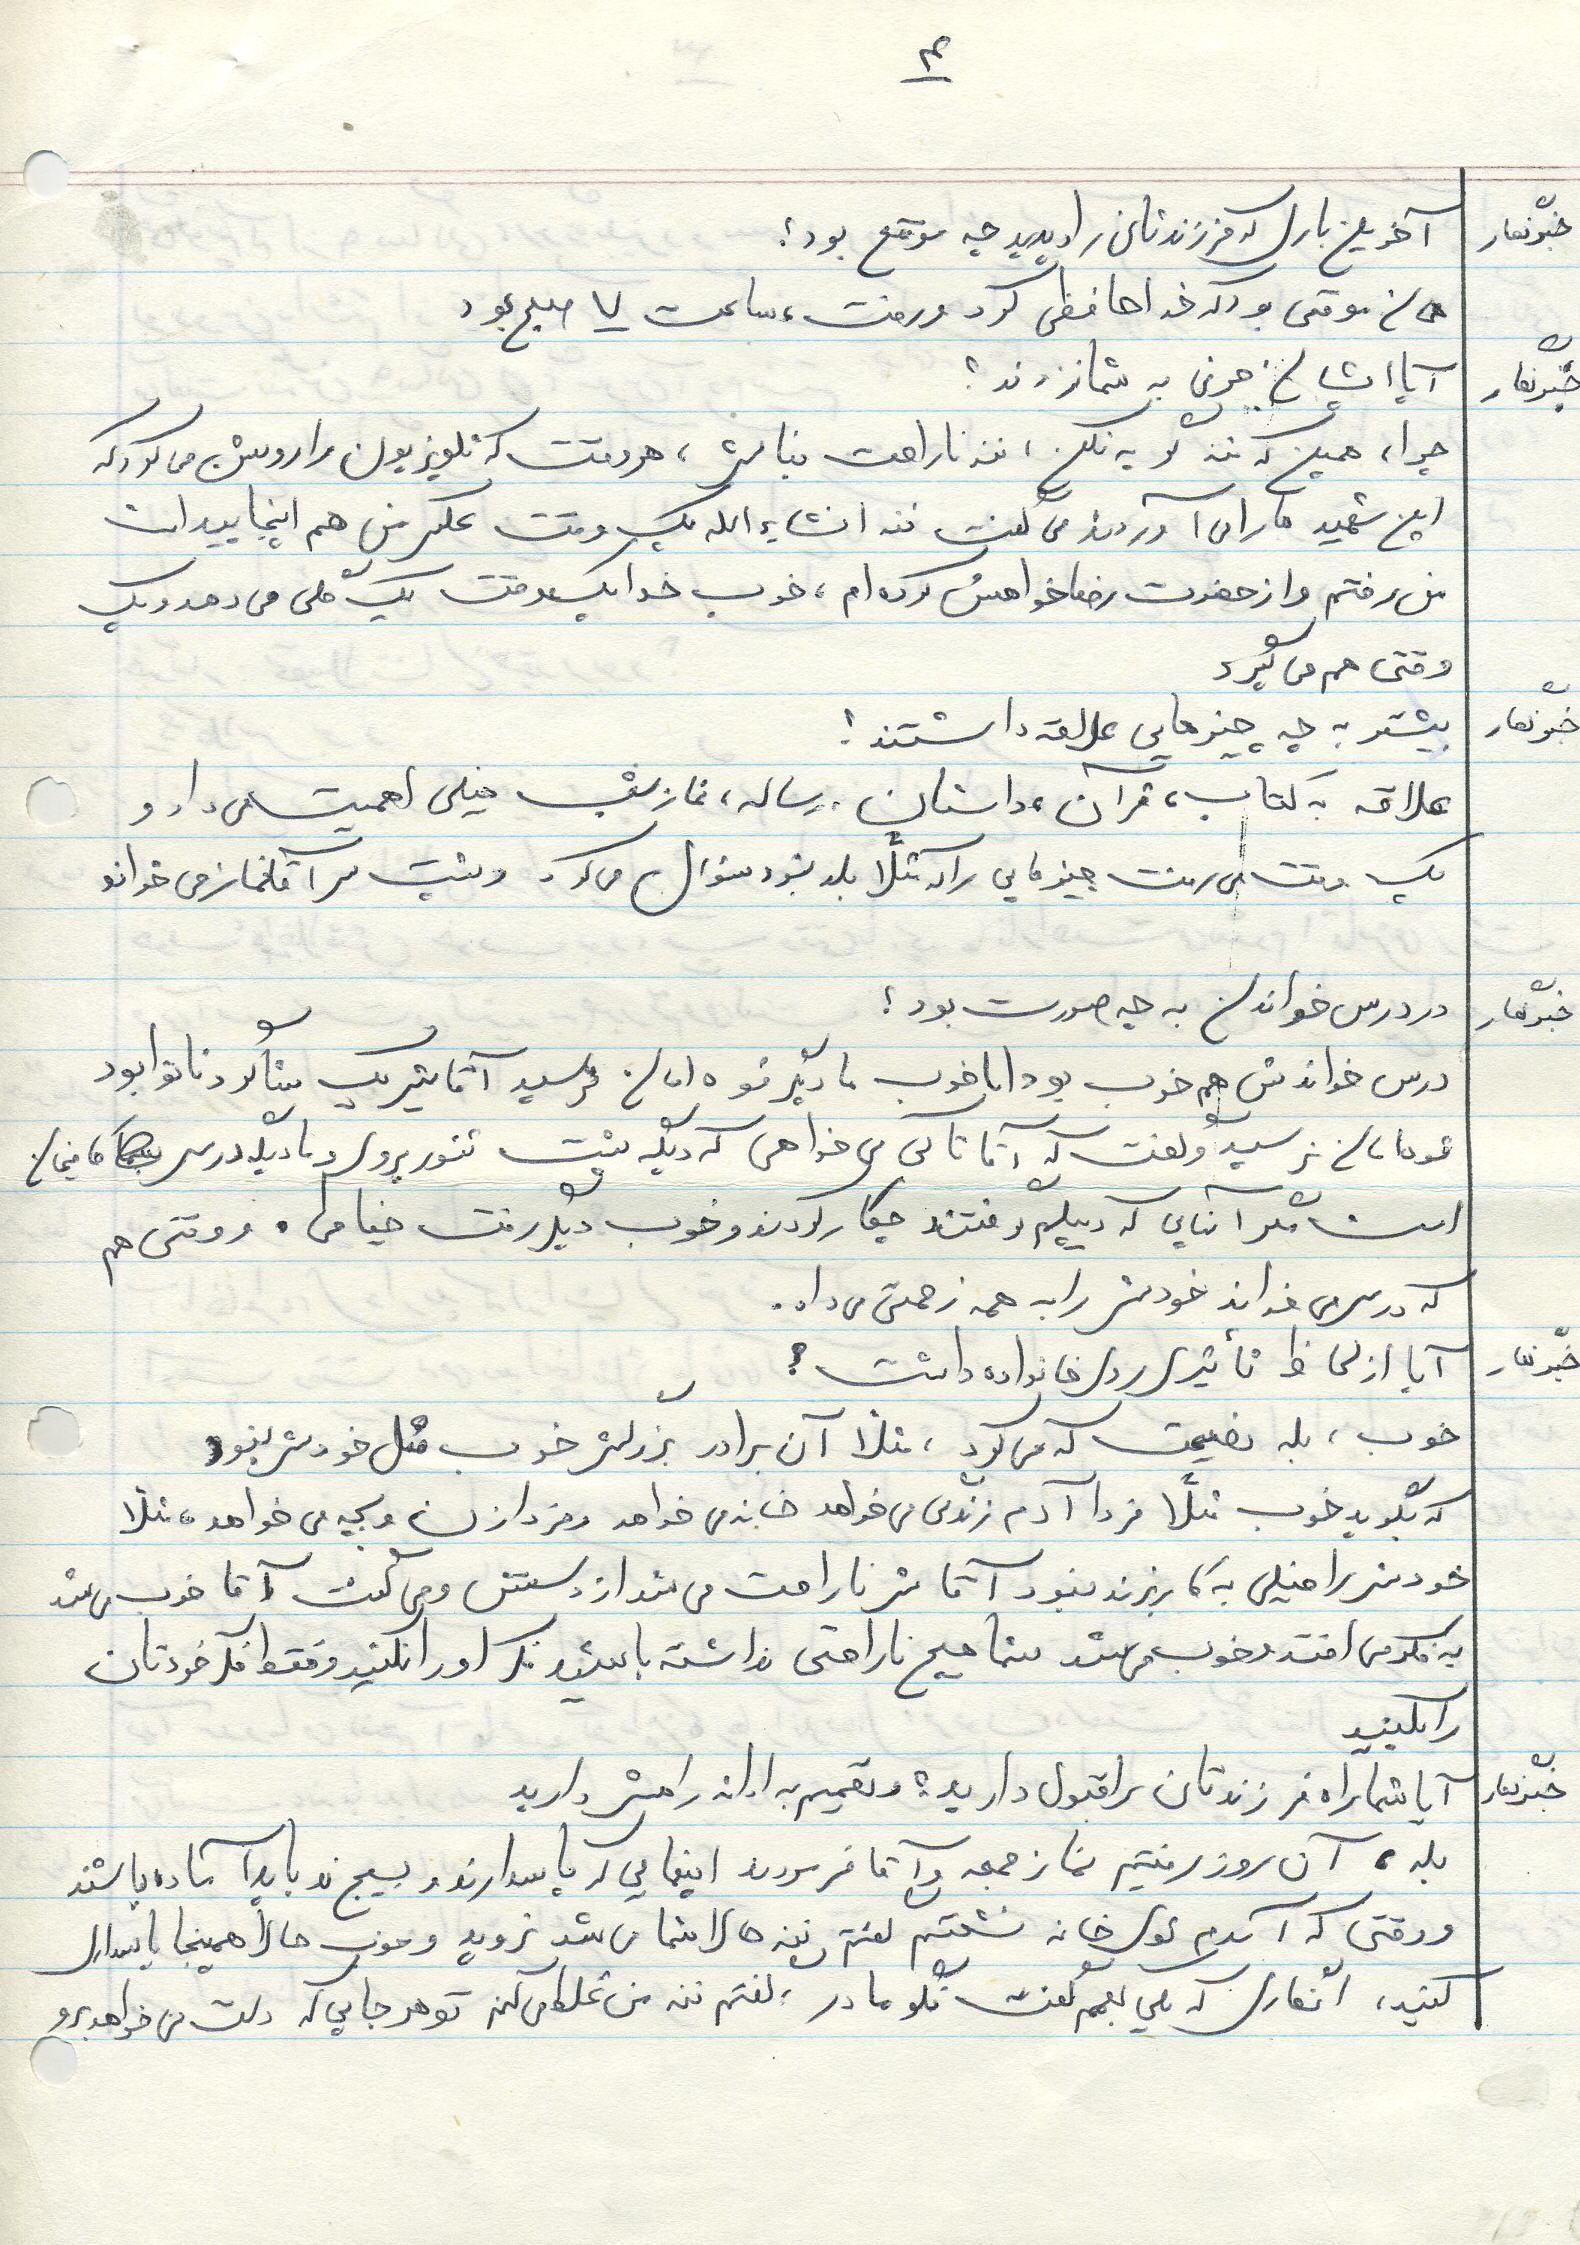 ۴
خبرنگار آخرین باری که فرزندتان را دیدید چه موقع بود؟
همان موقعی بود که خداحافظی کرد و رفت، ساعت ۷ صبح بود
خبرنگار آیا ایشان حرفی به شما نزدند؟
چرا، همین که ننه گریه نکن، ننه ناراحت نباش، هر وقت که تلویزیون را روشن می کرد که
این شهید ما را می آوردند می گفت ننه انشاء الله یک وقت عکس من هم اینجا پیدا است
من رفتم و از حضرت رضا خواهش کرده ام، خوب خدا یک وقت یک گلی می دهد و یک
وقتی هم می گیرد
خبرنگار بیشتر به چه چیزهایی علاقه داشتند؟
علاقه به کتاب، قرآن، داستان، رساله، نماز شب خیلی اهمیت می داد و
یک وقت می رفت چیزهایی را که مثلاً بلد نبود سئوال می کرد و پشت سر آقا نماز می خواند
خبرنگار در درس خواندن به چه صورت بود؟
درس خواندنش هم خوب بود اما خوب ما دیگر قوه امان نرسید آقایش یک شاگرد نانوا بود
قوه امان نرسید و گفت که آقا تا کی می خواهی که دیگه پشت تنور بروی و ما دیگه درس همین
است مگر آنهایی که دیپلم گرفتند چکار کردند و خوب دیگر رفت خیاطی. و وقتی هم
که درس می خواند خودش را به همه زحمتی می داد.
خبرنگار آیا از لحاظ تأثیری روی خانواده داشت؟
خوب، بله نصیحت که می کرد، مثلاً آن برادر بزرگش خوب مثل خودش نبود
که بگوید خوب مثلاً فردا آدم زندگی می خواهد خانه می خواهد و فردا زن و بچه می خواهد، مثلاً
خودش را خیلی به کار بزند نبود آقاش ناراحت می شد از دستش و می گفت آقا خوب می شد
به فکر می افتد و خوب می شد شما هیچ ناراحتی نداشته باشید فکر او را نکنید و فقط فکر خودتان
را بکنید
خبرنگار آیا شما راه فرزندتان را قبول دارید؟ و تصمیم به ادامه راهش دارید
بله، آن روز رفتیم نماز جمعه و آقا فرمودند اینهایی که پاسدارند و بسیجند باید آماده باشند
و وقتی که آمدم توی خانه نشستم گفتم ننه حالا شما می شد نروید و خوب حالا همینجا پاسداری
کنید، انگاری که بهم گفت نگو مادر، گفتم ننه من غلط می کنم تو هر جایی که دلت می خواهد برو